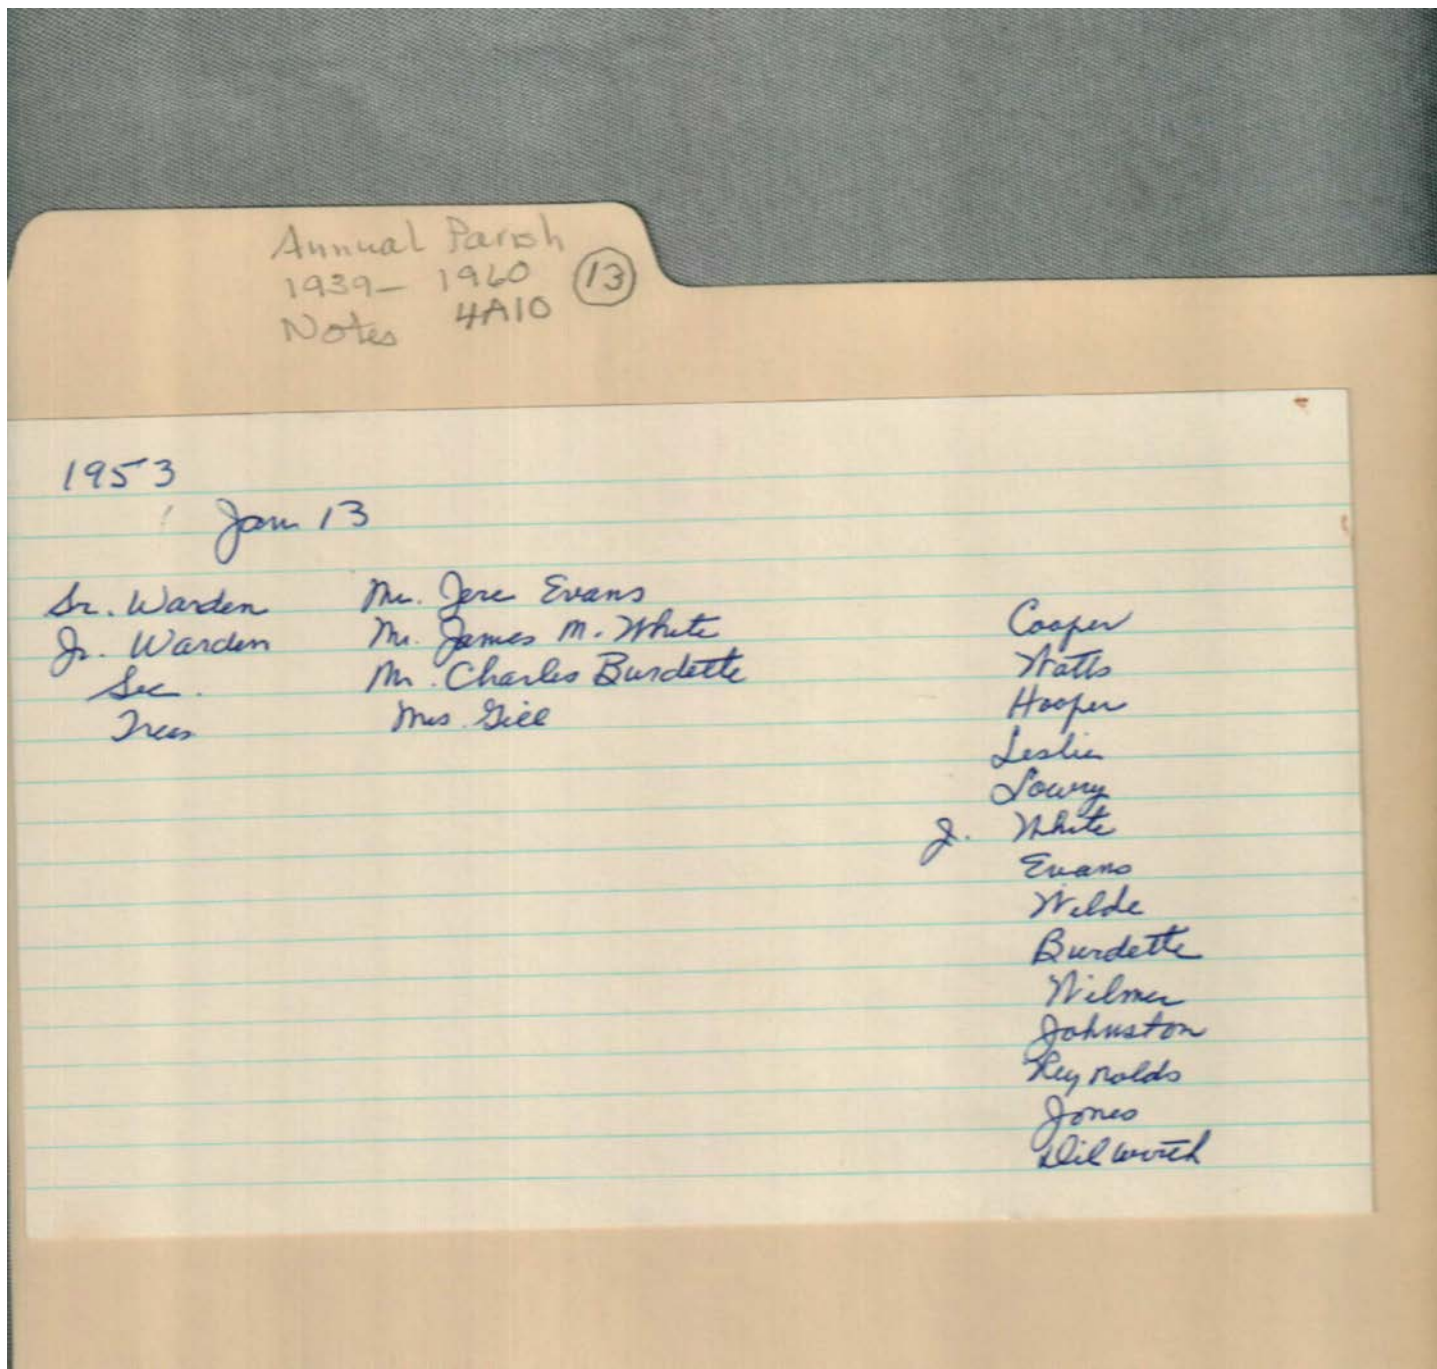 Annual Parish
1939- 1960 13
Notes 4A10
1953
Jan 13
Sr. Warden Mr. Jere Evans
Jr. Warden Mr. James M. White
Sec. Mr. Charles Burdette
Treas Mrs. Gill
Cooper
Watts
Hooper
Leslie
Lowry
J. White
Evans
Wilde
Burdette
Wilmer
Johnston
Reynolds
Jones
Dilworth